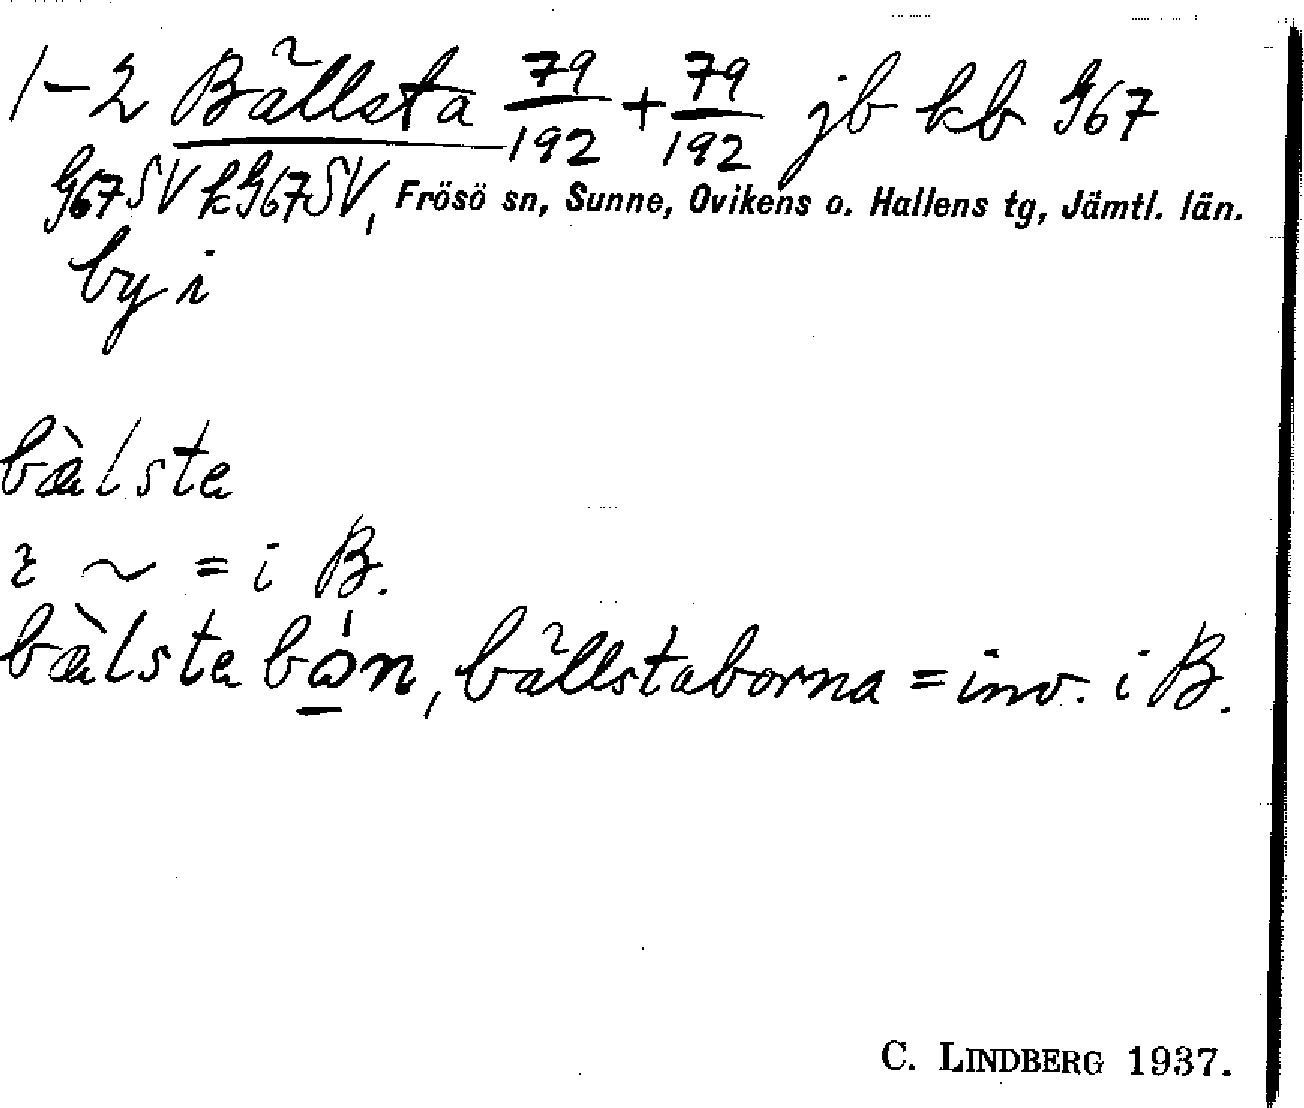 1-2 Bällsta 79/192 + 79/192 jb kb G67
G67SV kG67SV, Frösö sn, Sunne, Ovikens o. Hallens tg, Jämtl. län.
by i
bæ̀lsta
i ~ = i B.
bæ̀lsta bón, bällstaborna = inv. i B.
C. LINDBERG 1937.